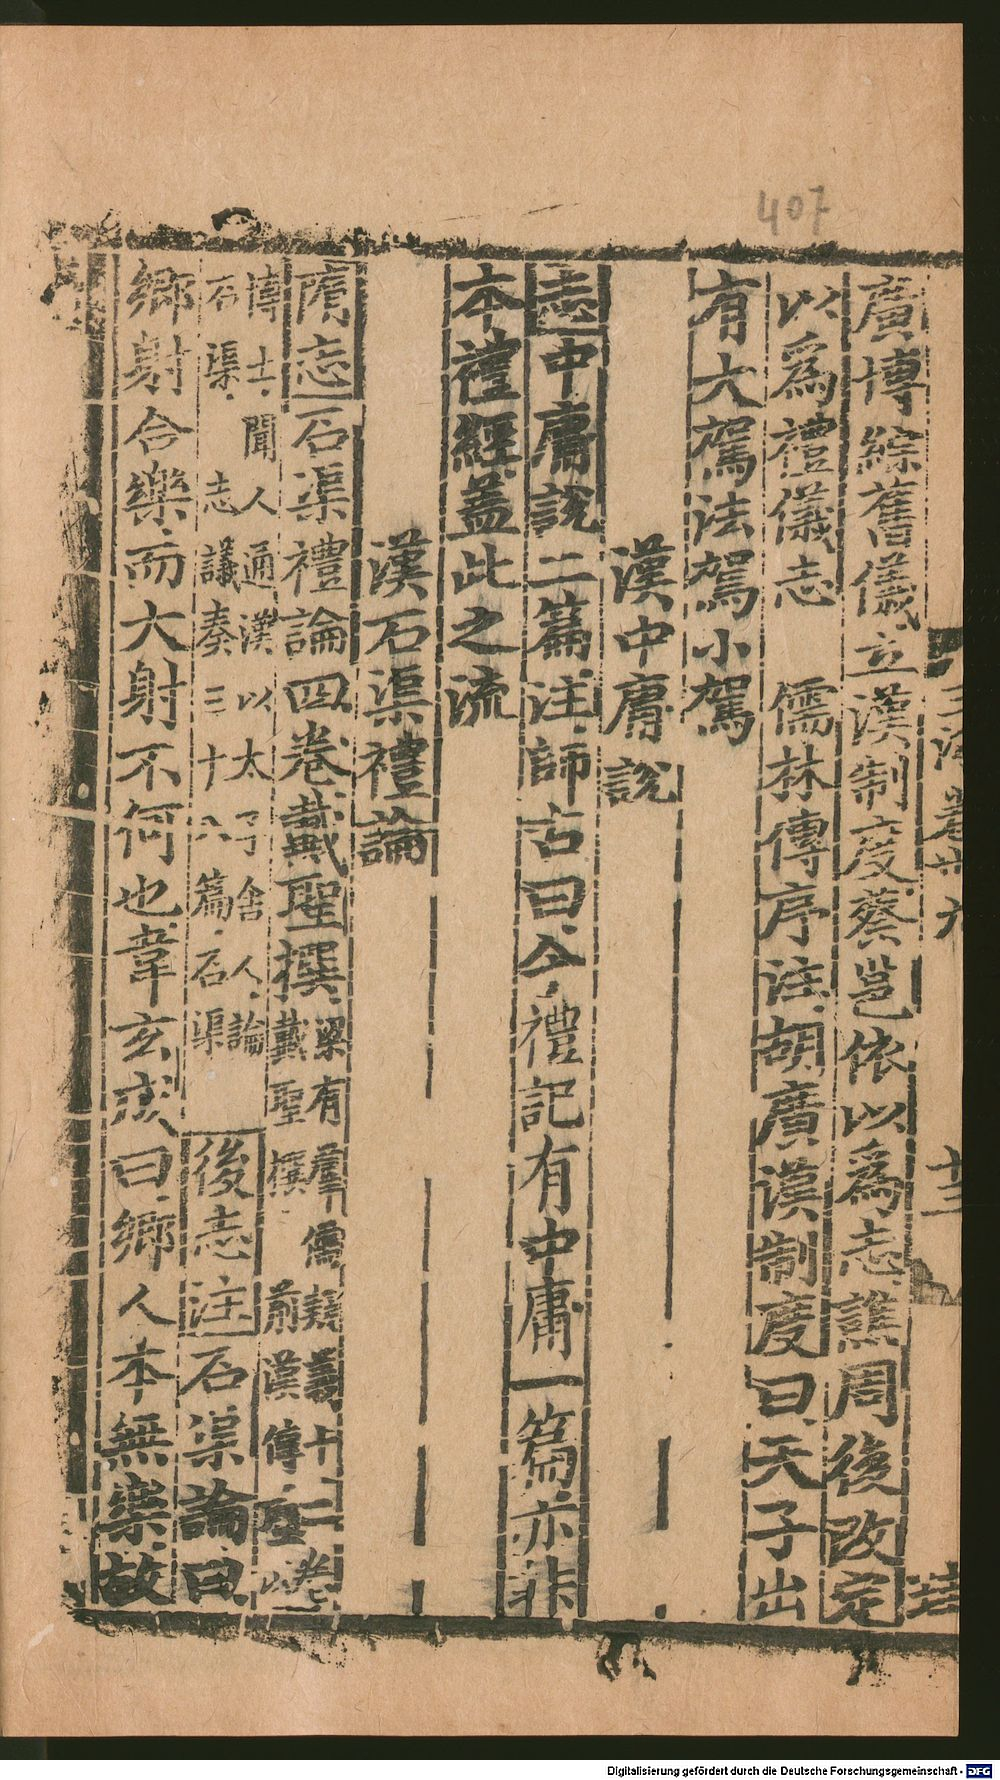 407
廣博綜舊儀立漢制度蔡邕依以爲志譙周後改定
以爲禮儀志　儒林傳序注胡廣漢制度曰天子出
有大駕法駕小駕
漢中庸說
志中庸說二篇注師古曰今禮記有中庸一篇亦非
本禮經蓋此之流
漢石渠禮論
隋志石渠禮論四卷戴聖撰
梁有羣儒疑義十二卷
戴聖撰　前漢傳聖以
博士
聞人通漢以太子舍人論
石渠
志議奏三十八篇石渠
後志注石渠論曰
鄉射合樂而大射不何也韋玄成曰鄉人本無樂故
Digitalisierung gefördert durch die Deutsche Forschungsgemeinschaft - DFG